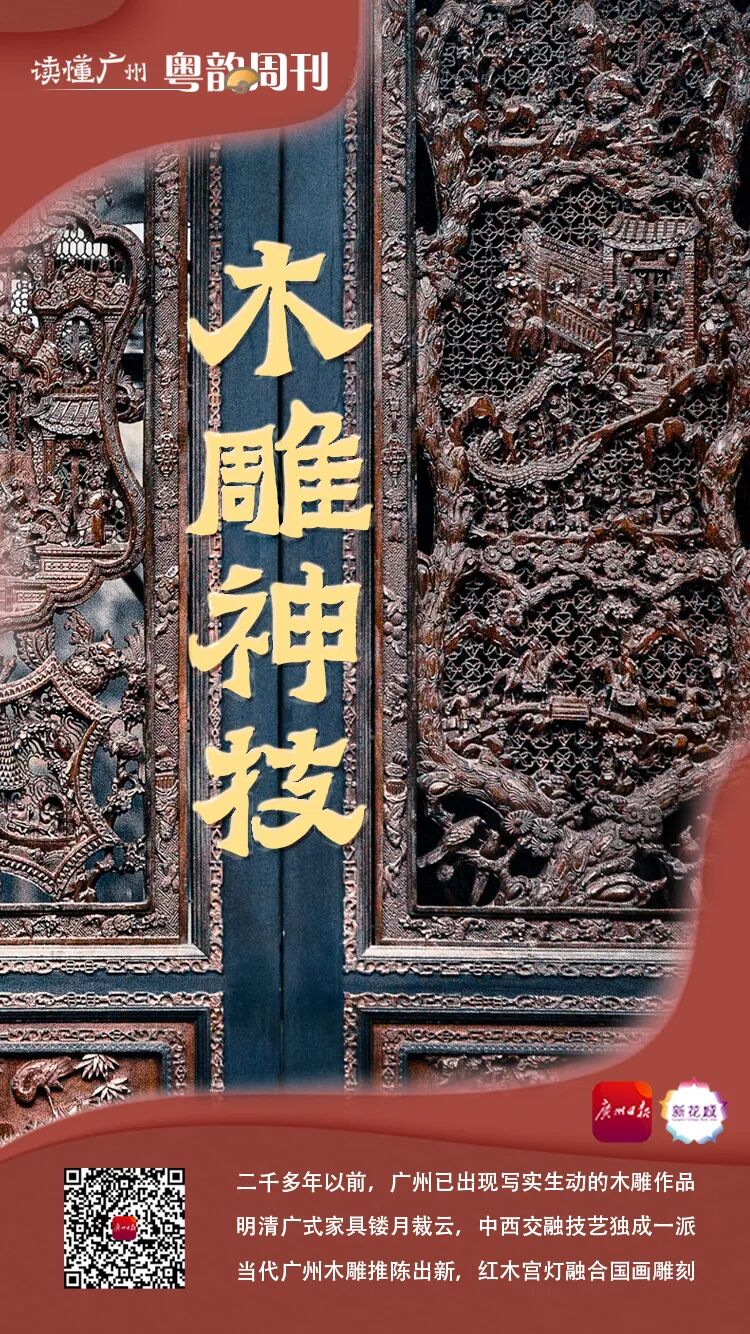 读懂广州 粤韵周刊
木雕神技
广州日报
新花城
二千多年以前，广州已出现写实生动的木雕作品
明清广式家具镂月裁云，中西交融技艺独成一派
当代广州木雕推陈出新，红木宫灯融合国画雕刻